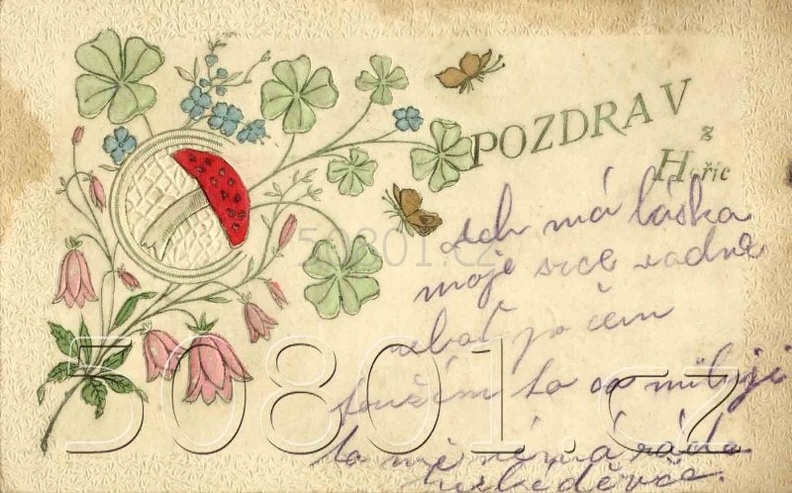 POZDRAV
z
Hořic
Ach má láska
moje srce vadne
neboť po čem
toužím to co miluji
to mě nemá rádo
děvče.
50801.cz
50801.cz